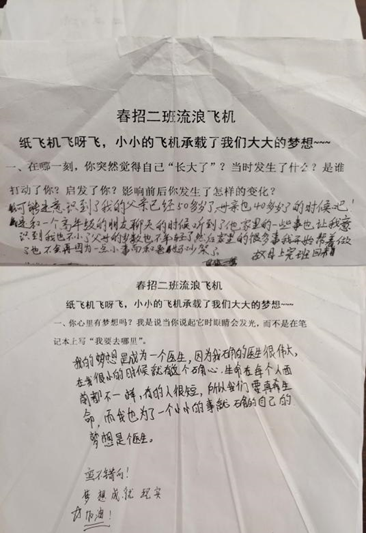 春招二班流浪飞机
纸飞机飞呀飞，小小的飞机承载了我们大大的梦想~~~
一、在哪一刻，你突然觉得自己“长大了”？当时发生了什么？是谁
打动了你？启发了你？影响前后你发生了怎样的变化？
可能是意识到了我的父亲已经50多岁了，母亲也40多岁了的时候吧！
是和一个高年级的朋友聊天的时候听到了他家里的一些事也让我意
识到我也不小了父母的岁数也不年轻了然后家里的很多事我开始帮着做
了也不会再因为一些小事而和爸妈吵架了
春招二班流浪飞机
纸飞机飞呀飞，小小的飞机承载了我们大大的梦想~~~
一、你心里有梦想吗？我是说当你说起它时眼睛会发光，而不是在笔
记本上写“我要去哪里”。
我的梦想是成为一个医生，因为我 的医生很伟大，
在我很小的时候就有这个 心，生命在每个人面
前都不一样，有的人很短，所以我们要 生
命，而我也为了一个小小的事就 自己的
梦想是个医生。
梦想成 现实